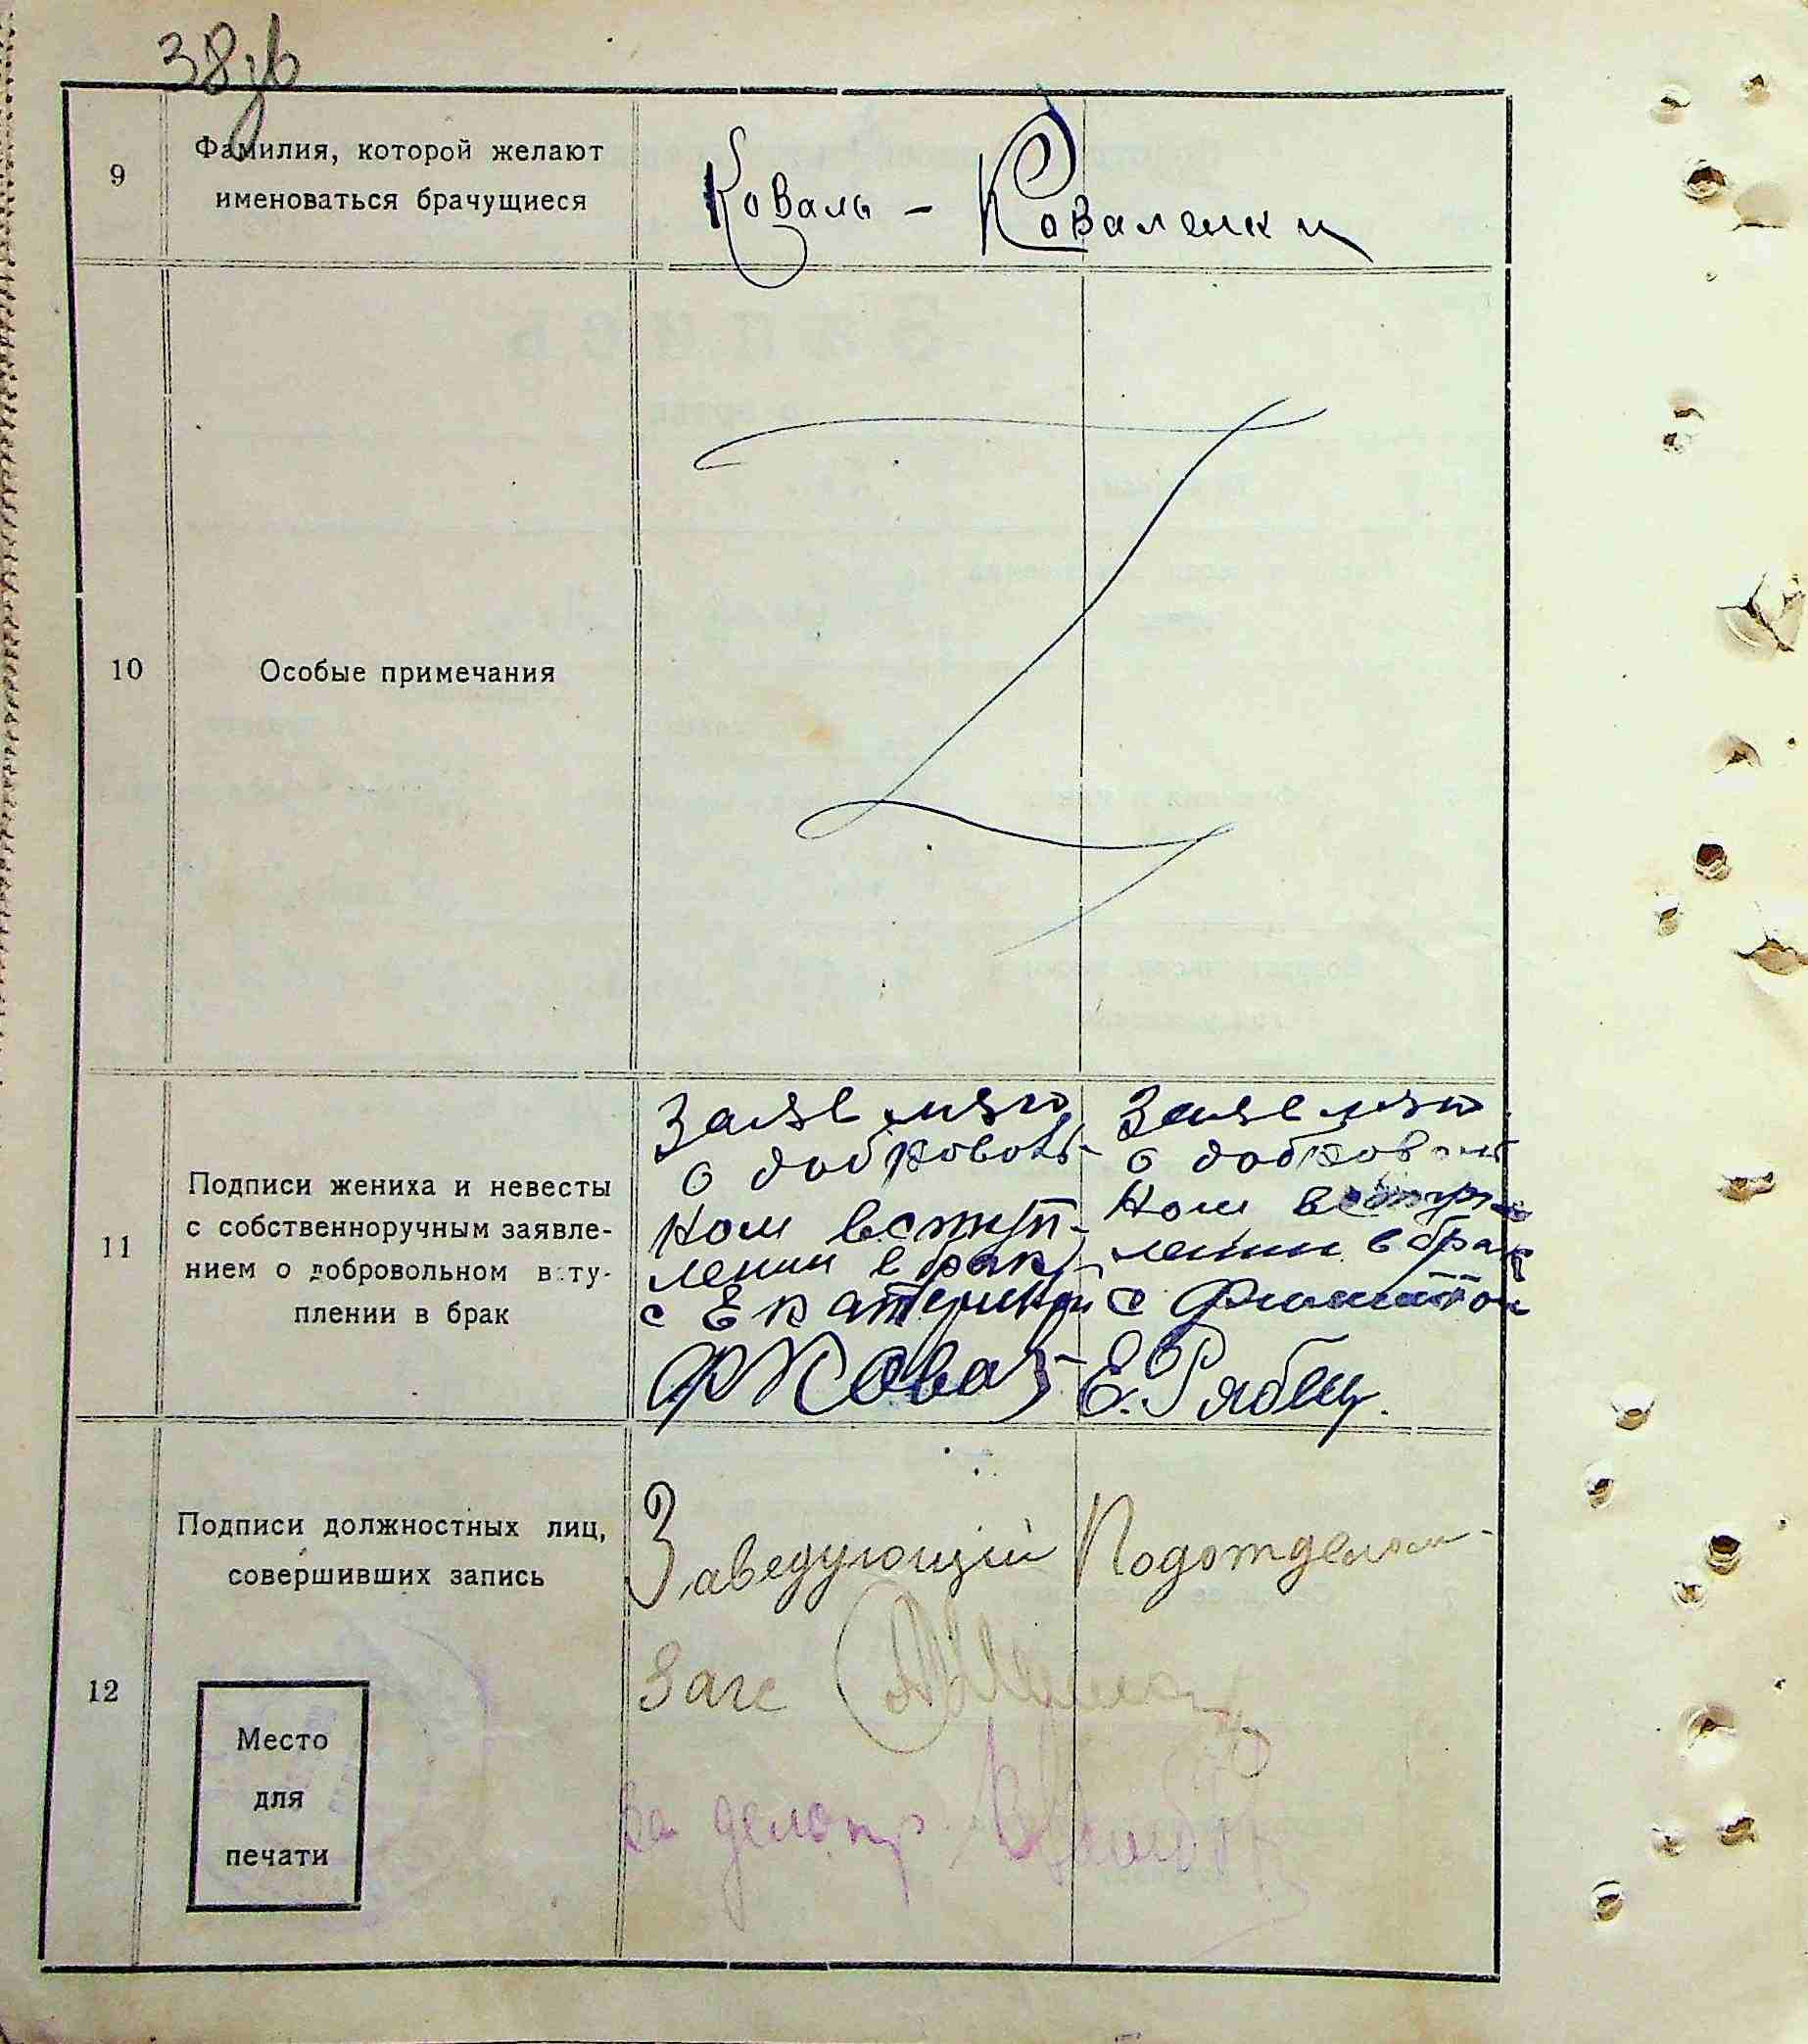 38
9
Фамилия, которой желают
именоваться брачущиеся
Коваль - Коваленки
10
Особые примечания
11
Подписи жениха и невесты
с собственноручным заявле-
нием о добровольном в ту-
плении в брак
Заявляю
о доброволь-
ном вступ-
лении в брак
с Екатериной
Заявляю
о доброволь
ном вступ-
лении в брак
с
Е. Рябец.
12
Подписи должностных лиц,
совершивших запись
Место
для
печати
Заведующий Подотделом
Загс
за делопр.